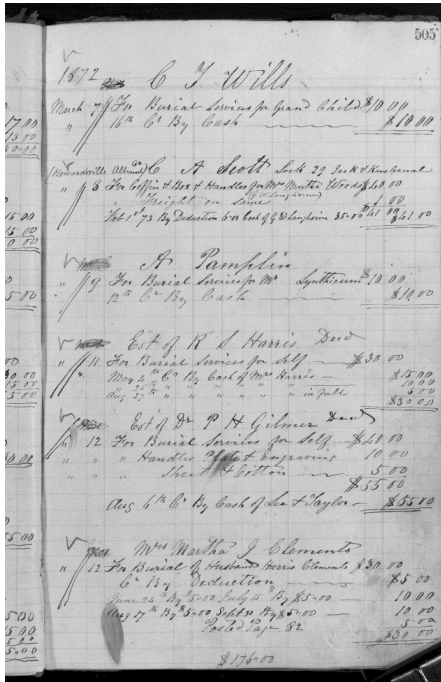 505
1872 C T Wills
March 7 For Burial Services for Grand Child $10.00
" 16th Cr By Cash $10.00
Howardsville Albemarle Co C A Scott Lock 29 Jas & Kana Canal
" 8 For Coffin & Box & Handles for Mrs Martha Woods $40.00
" Freight on same 1.00
$41.00
Feb 1st 73 By Deduction 6.00 Cash of G W Langhorne 35.00 $41.00
A Pamplin
" 9 For Burial Services for Mr Lynthicum $10.00
" 12th Cr By Cash $10.00
Est of R S Harris Decd
" 11 For Burial Services for self $30.00
" May 4th Cr By Cash of Mrs Harris $15.00
" " " " " 10.00
Aug 27th " " " " " in full 5.00
$30.00
Est of Dr P H Gilmer Decd
" 12 For Burial Services for Self $40.00
" " " Handles Plate & Engraving 10.00
" " " Sheet & Cotton 5.00
$55.00
Aug 6th Cr By Cash of Lee & Taylor $55.00
Mrs Martha J Clements
" 12 For Burial of Husband Harris Clements $30.00
Cr By Deduction $5.00
June 24th By $5.00 July 15th By $5.00 10.00
Aug 17th By $5.00 Sept 30 By $5.00 10.00
Posted Page 82 5.00
$30.00
$176.00
17.00
13.00
15.00
15.00
5.00
30.00
15.00
5.00
5.00
5.00
5.00